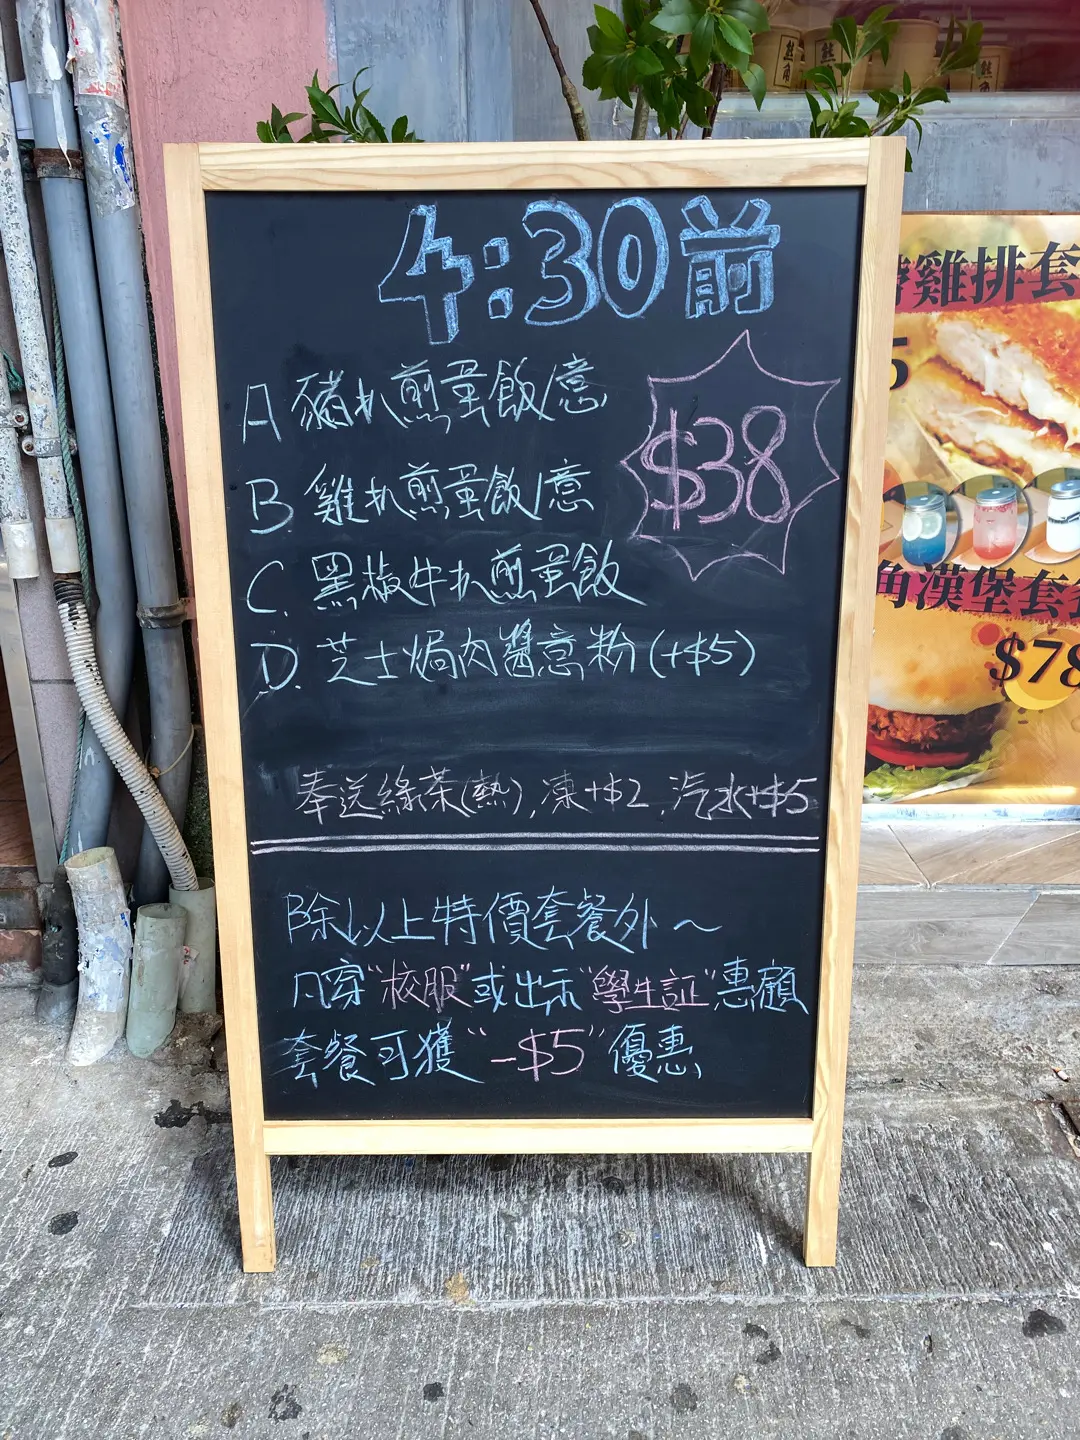 4:30前
A 豬扒煎蛋飯/意
B. 雞扒煎蛋飯/意
C. 黑椒牛扒煎蛋飯
D. 芝士焗肉醬意粉(+$5)
$38
奉送綠茶(熱), 凍+$2, 汽水+$5
除以上特價套餐外~
凡穿"校服"或出示"學生証"惠顧
套餐可獲"-$5"優惠
雞排套
5
角漢堡套
$78